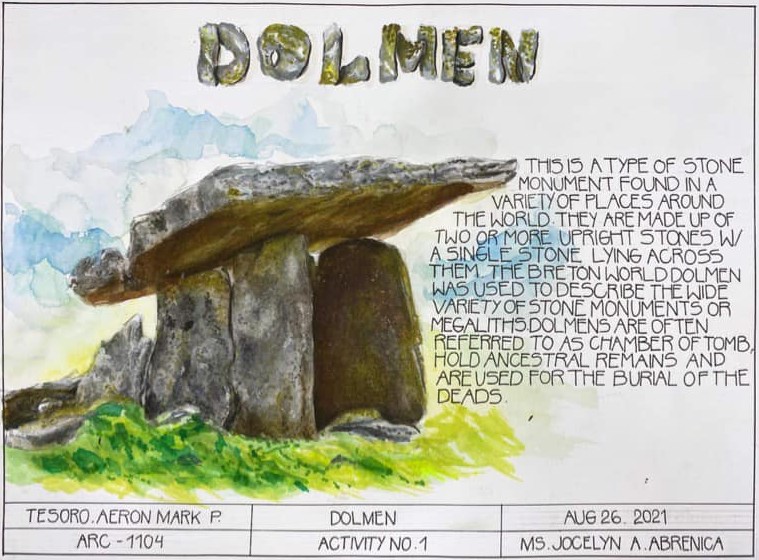 DOLMEN
THIS IS A TYPE OF STONE
MONUMENT FOUND IN A
VARIETY OF PLACES AROUND
THE WORLD. THEY ARE MADE UP OF
TWO OR MORE UPRIGHT STONES W/
A SINGLE STONE LYING ACROSS
THEM. THE BRETON WORLD DOLMEN
WAS USED TO DESCRIBE THE WIDE
VARIETY OF STONE MONUMENTS OR
MEGALITHS.DOLMENS ARE OFTEN
REFERRED TO AS CHAMBER OF TOMB,
HOLD ANCESTRAL REMAINS AND
ARE USED FOR THE BURIAL OF THE
DEADS.
TESORO. AERON MARK P.
DOLMEN
AUG 26. 2021
ARC - 1104
ACTIVITY NO. 1
MS. JOCELYN A. ABRENICA